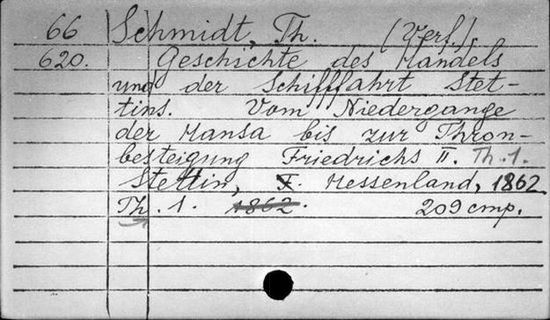 66 Schmidt, Th. (Verf.).
620. Geschichte des Handels
und der Schifffahrt Stet-
tins. Vom Niedergange
der Hansa bis zur Thron-
besteigung Friedrichs II. Th. 1.
Stettin, F. Hessenland, 1862
Th. 1. 1862. 209 cmp.